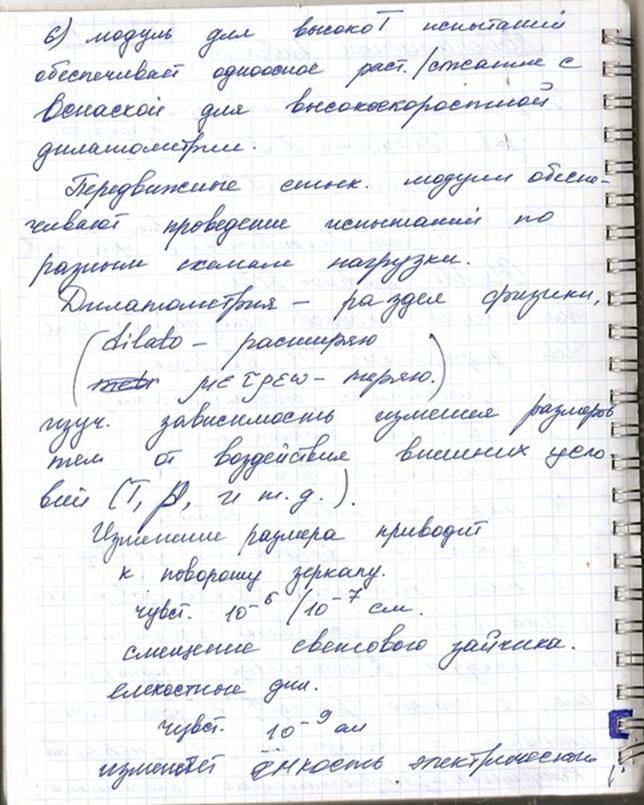 6) модуль для высокоT испытаний
обеспечивает одноосное раст./сжатие с
оснаской для высокоскоростной
дилатометрии.
Передвижные стык. модули обеспе-
чивают проведение испытаний по
разным схемам нагрузки.
Дилатометрия – раздел физики,
(dilato – расширяю
μετρεω – меряю.)
изуч. зависимость изменея размеров
тел от воздействия внешних усло-
вий (T, p, и т.д.).
Изменение размера приводит
к повороту зеркалу.
чувст. 10⁻⁶/10⁻⁷ см.
смещение светового зайчика.
емкостные дил.
чувст. 10⁻⁹ см
изменяет ёмкость электрической